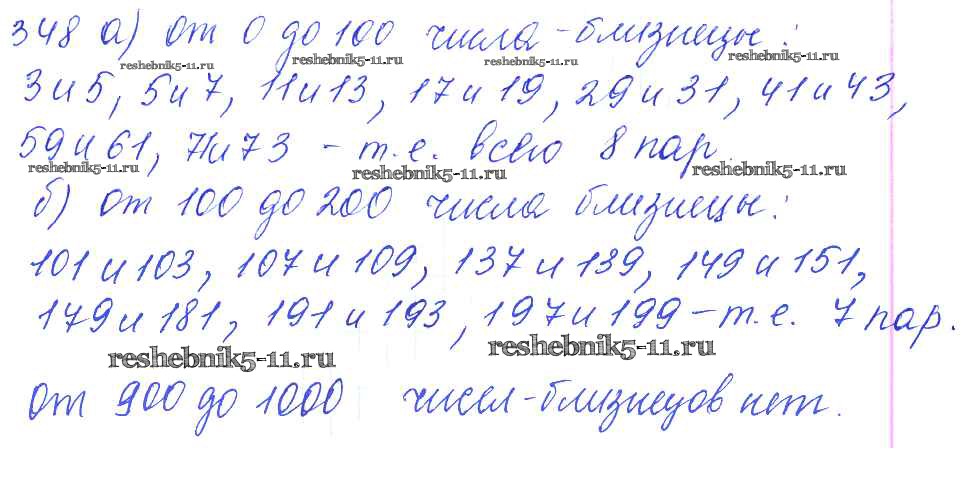 348 а) от 0 до 100 числа-близнецы:
reshebnik5-11.ru reshebnik5-11.ru reshebnik5-11.ru
3 и 5, 5 и 7, 11 и 13, 17 и 19, 29 и 31, 41 и 43,
59 и 61, 71 и 73 - т.е. всего 8 пар.
reshebnik5-11.ru reshebnik5-11.ru reshebnik5-11.ru
б) от 100 до 200 числа близнецы:
101 и 103, 107 и 109, 137 и 139, 149 и 151,
179 и 181, 191 и 193, 197 и 199 - т.е. 7 пар.
reshebnik5-11.ru reshebnik5-11.ru
От 900 до 1000 чисел-близнецов нет.